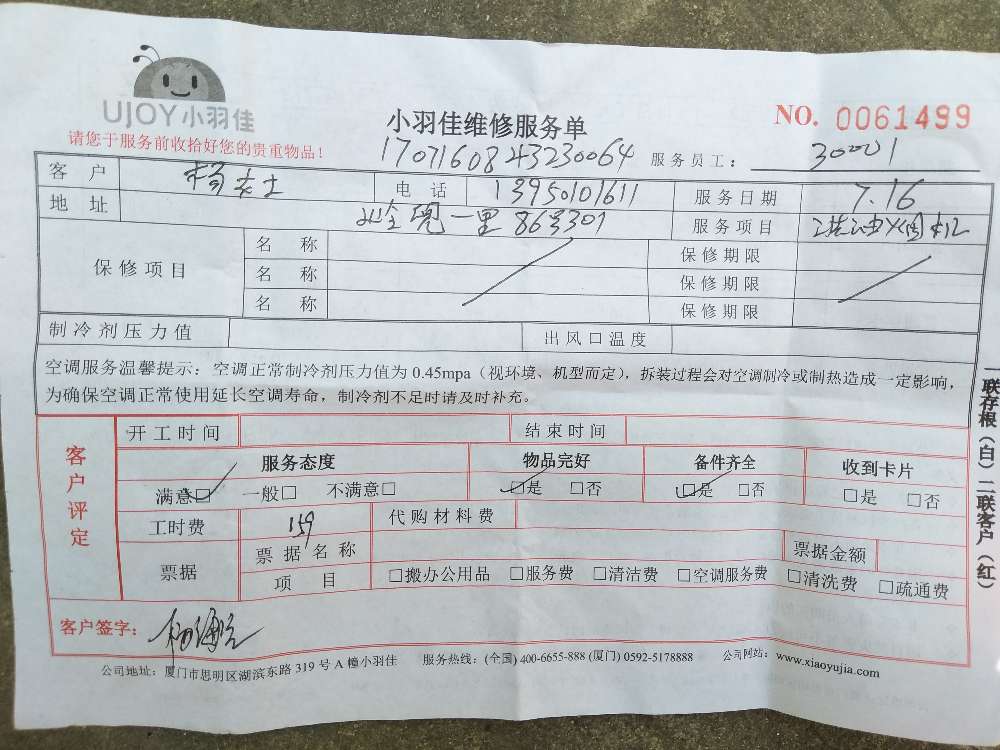 UJOY小羽佳
小羽佳维修服务单
NO. 0061499
请您于服务前收拾好您的贵重物品!
1707160843230064 服务员工: 30001
客户 杨女士 电话 13950101611 服务日期 7.16
地址 一里86号301 服务项目 洗油烟机
保修项目 名称 保修期限
名称 保修期限
名称 保修期限
制冷剂压力值 出风口温度
空调服务温馨提示:空调正常制冷剂压力值为 0.45mpa(视环境、机型而定),拆装过程会对空调制冷或制热造成一定影响,
为确保空调正常使用延长空调寿命,制冷剂不足时请及时补充。
客户评定
开工时间 结束时间
服务态度 物品完好 备件齐全 收到卡片
满意□ 一般□ 不满意□ □是 □否 □是 □否 □是 □否
工时费 159 代购材料费
票据 票据名称 票据金额
项目 □搬办公用品 □服务费 □清洁费 □空调服务费 □清洗费 □疏通费
客户签字:
公司地址:厦门市思明区湖滨东路 319 号 A 幢小羽佳 服务热线:(全国) 400-6655-888 (厦门) 0592-5178888 公司网站:www.xiaoyujia.com
一联存根(白)二联客户(红)